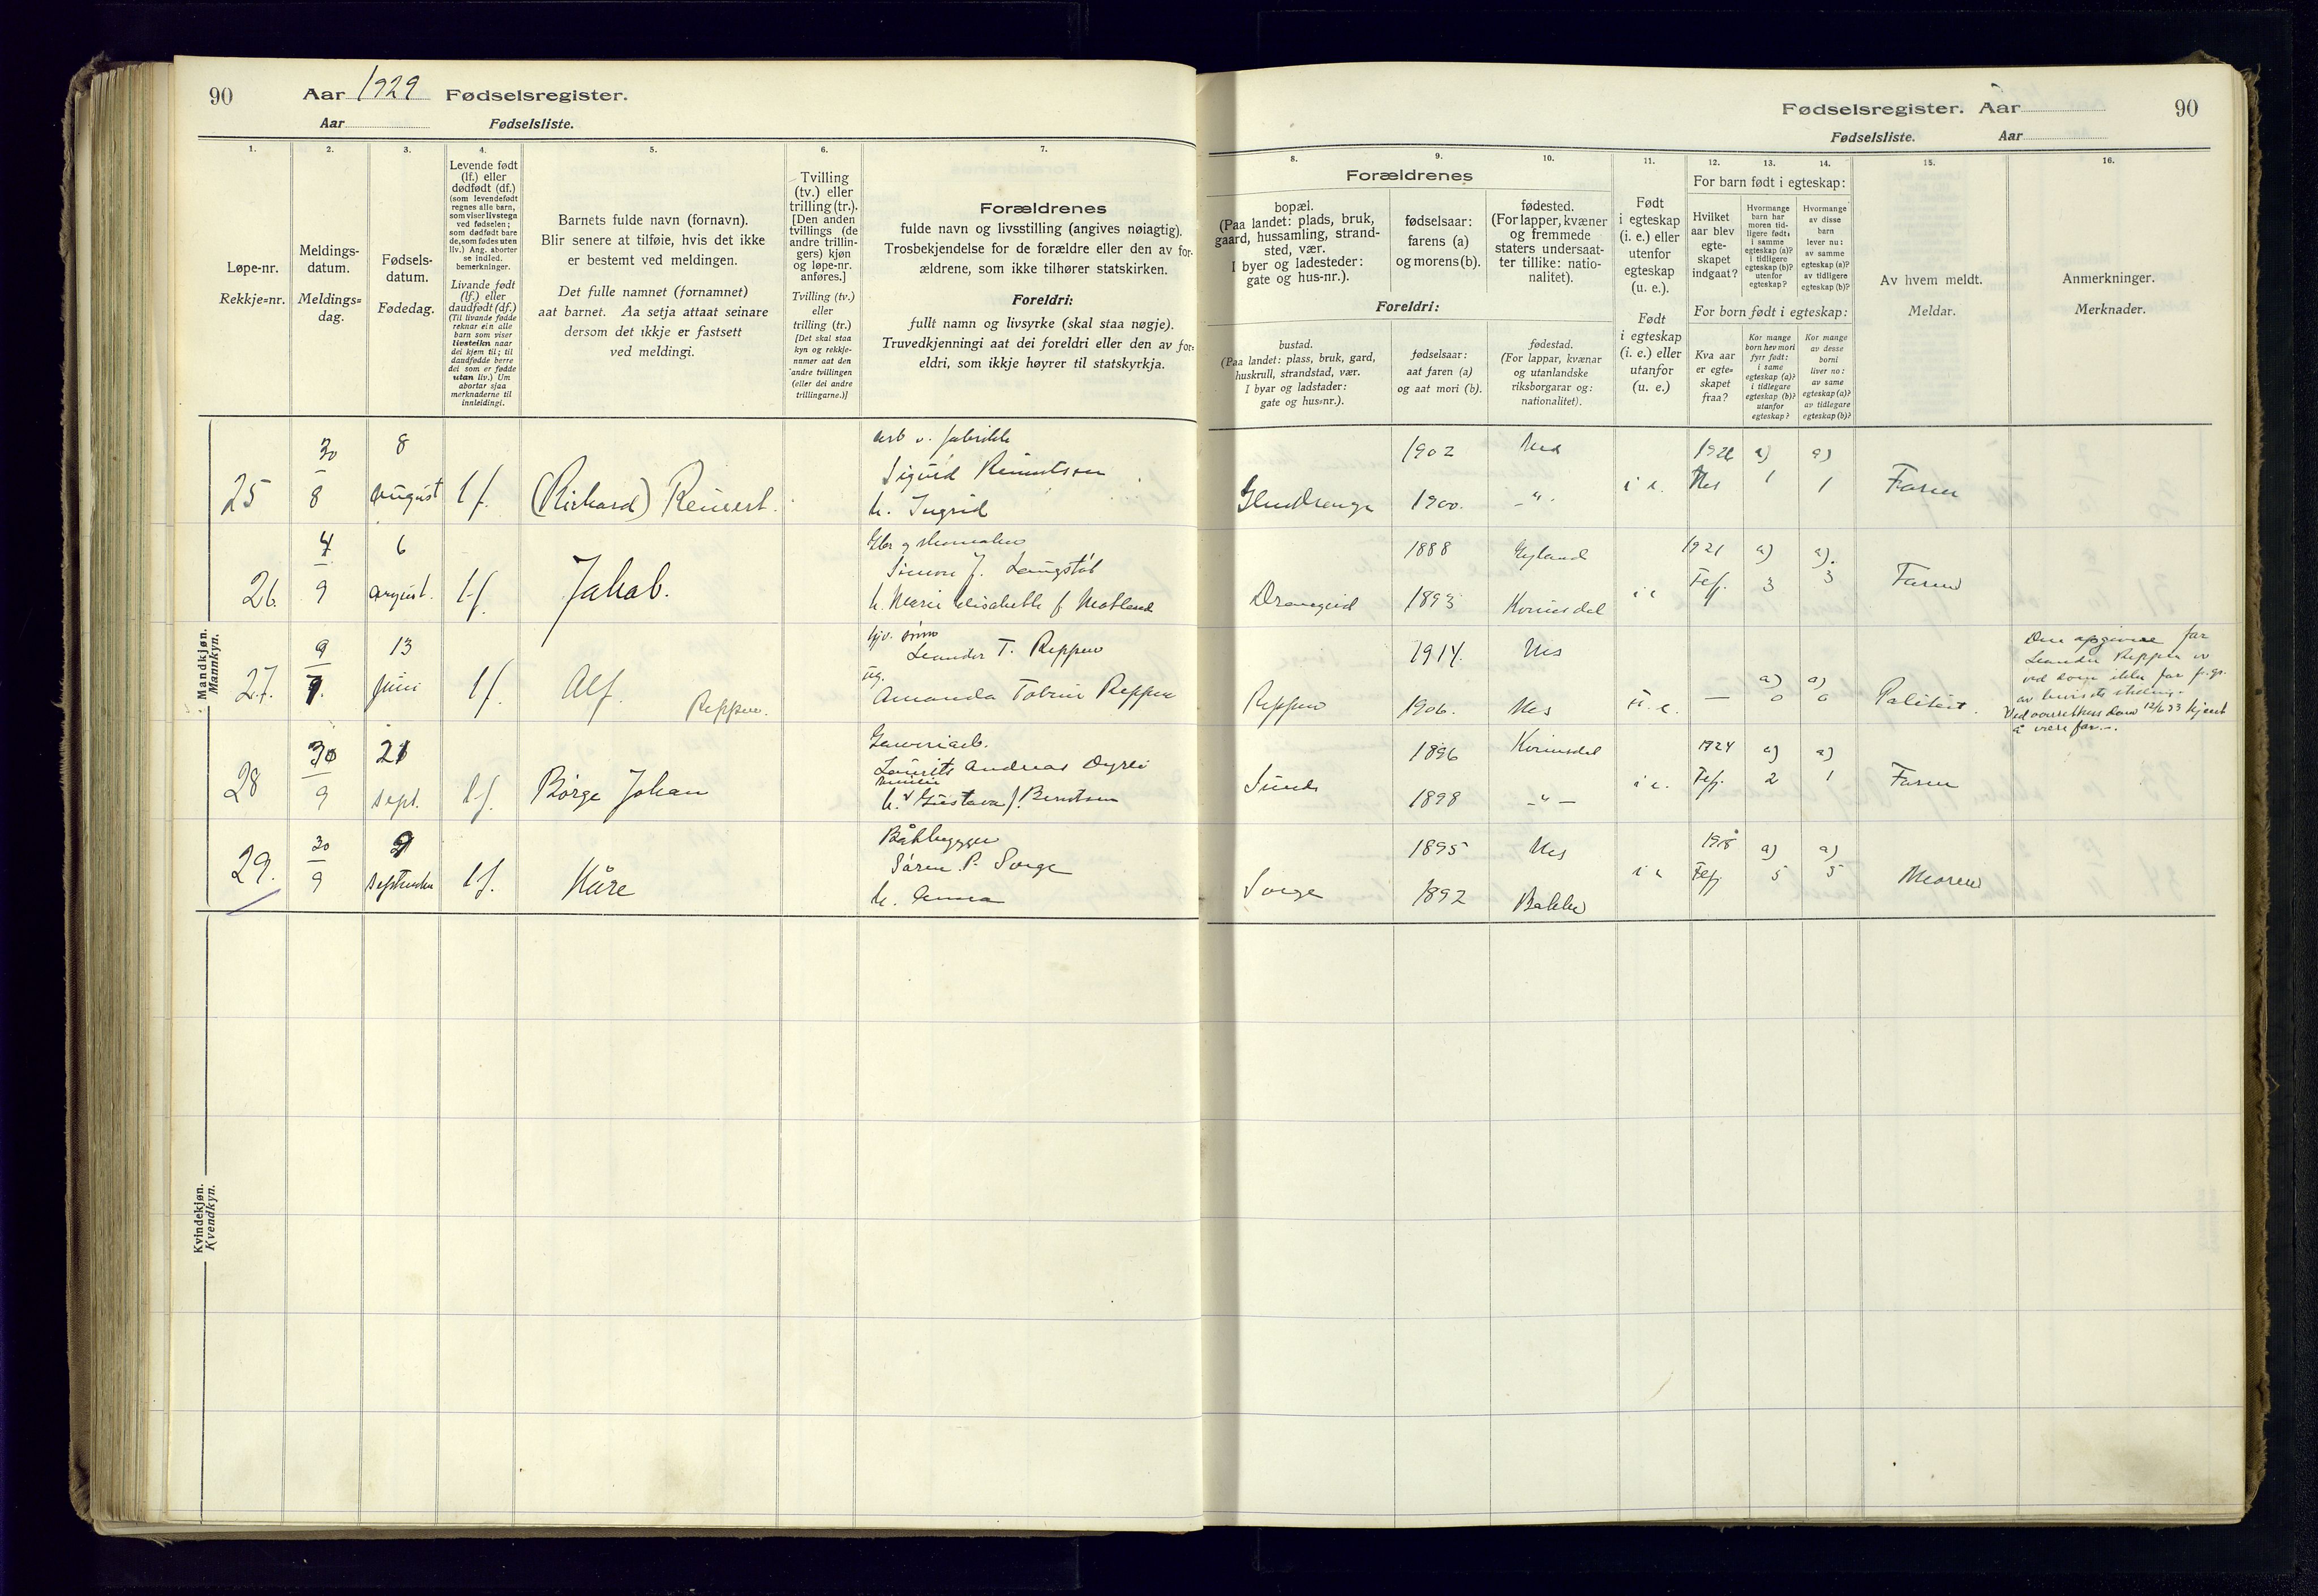 90 Aar 1929 Fødselsregister.
Aar Fødselsliste.
Fødselsregister. Aar 90
Fødselsliste. Aar
1. 2. 3. 4. 5. 6. 7.
Løpe-nr.
Rekkje=nr.
Meldings-
datum.
Meldings=
dag.
Fødsels-
datum.
Fødedag.
Levende født
(lf.) eller
dødfødt (df.)
(som levendefødt
regnes alle barn,
som viser livstegn
ved fødselen;
som dødfødt bare
de, som fødes uten
liv.) Ang. aborter
se indled.
bemerkninger.
Livande født
(lf.) eller
daudfødt (df.)
(Til livande fødde
reknar ein alle
barn som viser
livsteikn naar
dei kjem til; til
daudfødde berre
dei som er fødde
utan liv.) Um
abortar sjaa
merknaderne til
innleidingi.
Barnets fulde navn (fornavn).
Blir senere at tilføie, hvis det ikke
er bestemt ved meldingen.
Det fulle namnet (fornamnet)
aat barnet. Aa setja attaat seinare
dersom det ikkje er fastsett
ved meldingi.
Tvilling
(tv.) eller
trilling (tr.).
[Den anden
tvillings (de
andre trillin-
gers) kjøn
og løpe-nr.
anføres.]
Tvilling (tv.)
eller
trilling (tr.)
[Det skal staa
kyn og rekkje-
nummer aat den
andre tvillingen
(eller dei andre
trillingarne.)]
Forældrenes
fulde navn og livsstilling (angives nøiagtig).
Trosbekjendelse for de forældre eller den av for-
ældrene, som ikke tilhører statskirken.
Foreldri:
fullt namn og livsyrke (skal staa nøgje).
Truvedkjenningi aat dei foreldri eller den av for=
eldri, som ikkje høyrer til statskyrkja.
8. 9. 10. 11. 12. 13. 14. 15. 16.
Forældrenes
bopæl.
(Paa landet: plads, bruk,
gaard, hussamling, strand-
sted, vær.
I byer og ladesteder:
gate og hus-nr.).
fødselsaar:
farens (a)
og morens (b).
fødested.
(For lapper, kvæner
og fremmede
staters undersaat-
ter tillike: natio-
nalitet).
Foreldri:
bustad.
(Paa landet: plass, bruk, gard,
huskrull, strandstad, vær.
I byar og ladstader:
gate og hus=nr.).
fødselsaar:
aat faren (a)
og aat mori (b).
fødestad.
(For lappar, kvænar
og utanlandske
riksborgarar og:
nationalitet).
Født
i egteskap
(i. e.) eller
utenfor
egteskap
(u. e.).
Født
i egteskap
(i. e.) eller
utanfor
(u. e.)
For barn født i egteskap:
Hvilket
aar blev
egte-
skapet
indgaat?
Hvormange
barn har
moren tid-
ligere født:
i samme
egteskap (a)?
i tidligere
egteskap (b)?
utenfor
egteskap?
Hvormange
av disse
barn
lever nu:
av samme
egteskap (a)?
av tidligere
egteskap (b)?
For born født i egteskap:
Kva aar
er egte=
skapet
fraa?
Kor mange
born hev mori
fyrr født:
i same
egteskap (a)?
i tidlegare
egteskap (b)?
utanfor
egteskap?
Kor mange
av desse
borni
liver no:
av same
egteskap (a)?
av tidlegare
egteskap (b)?
Av hvem meldt.
Meldar.
Anmerkninger.
Merknader.
Mandkjøn.
Mannkyn.
25 30/8 8 august lf. (Richard) Reinert.
arb v. fabrikk
Sigurd Reinertsen
h. Ingrid
1902 Nes
1900. - " -
i e. Nes a) 1 a) 1 Faren
26 4/9 6 august. lf. Jakob.
Simon J. Langstøl
h. Marie Elisabeth f. Netland
1888 Gyland
1893 Kvinesdal
i e 1921 Fef. a) 3 a). 3 Faren
27. 13 juni lf. Alf. Reppen.
Leander T. Reppen
ug.
Amanda Tobine Reppen
Reppen
1914. Nes
1906. Nes
u. e. — a) 0 a) 0 Politiet.
Den opgivne far
Leander Reppen er
ved dom ikke far
Ved overretts dom 12/6 33 kjent
å være far.-.
28 30/9 21 sept. lf. Børge Johan
Garveriarb.
Laurits Andreas
h. Gustava f. Berntsen
Sunde
1896 Kvinesdal
1898 - " -
i e. 1924 Fef. a) 2 a) 1 Faren
29. 30/9 9 september lf. Kåre
Båtbygger
Søren P. Sorge
h. Anna
Sorge
1895 Nes
1892 Bakke
i e 1918 Fef. a) 5 a) 5 Moren
Kvindekjøn.
Kvendkyn.